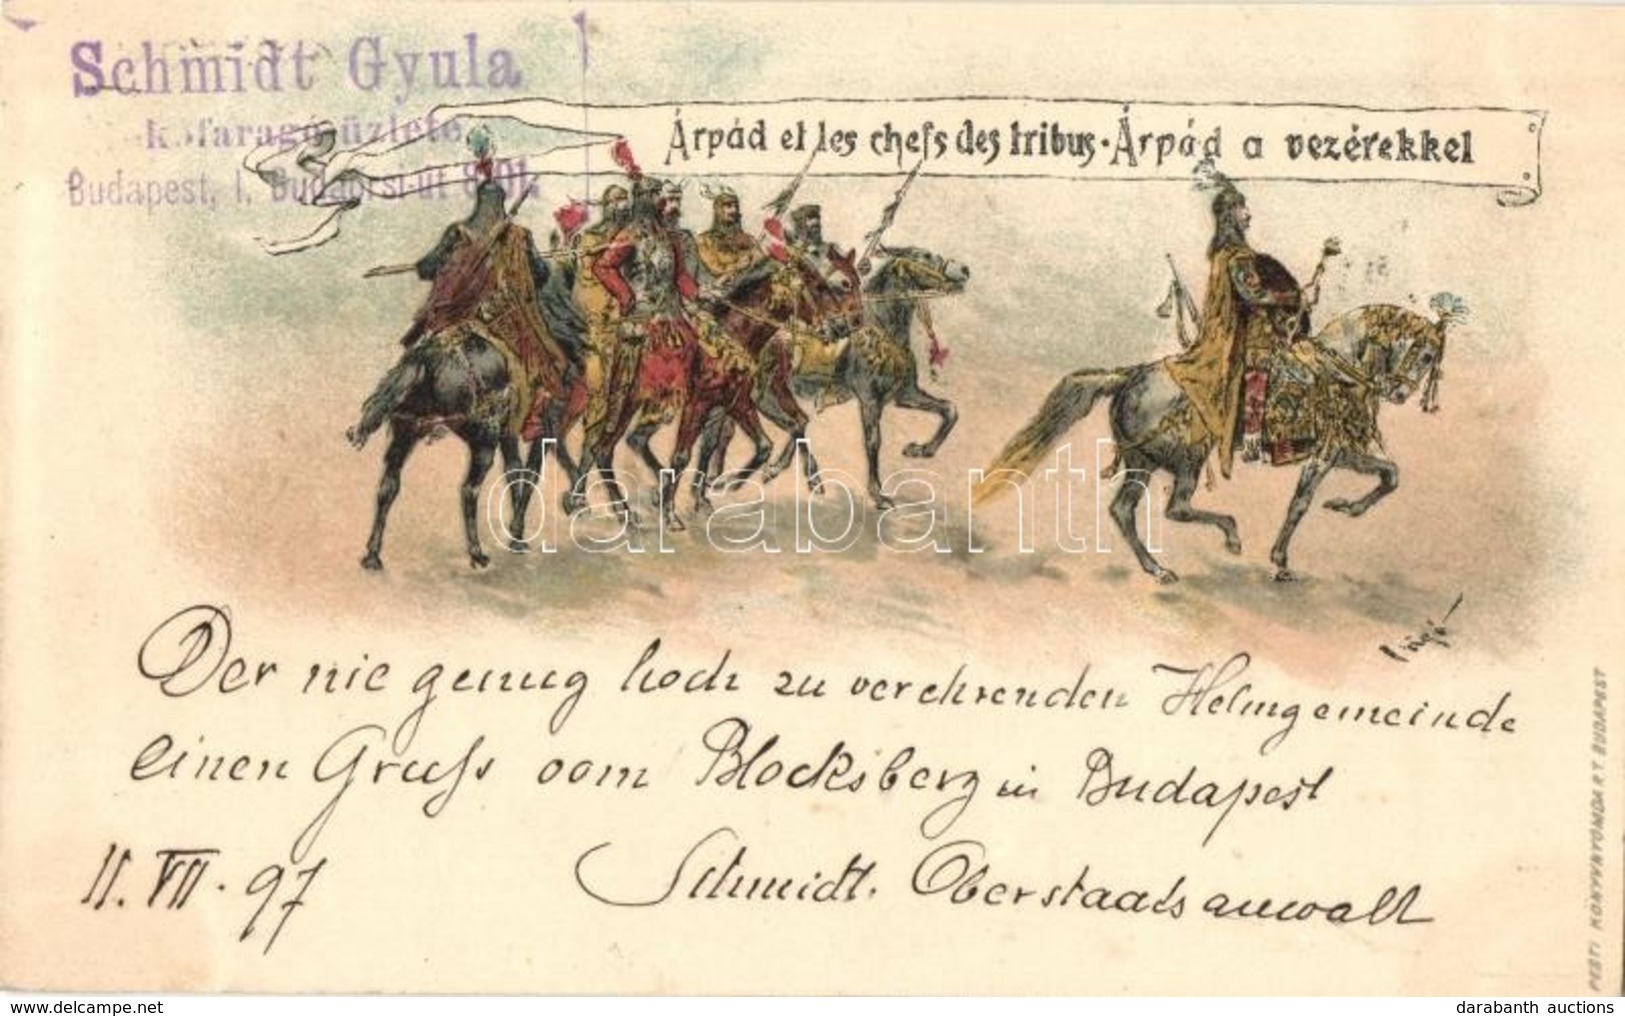 Schmidt Gyula
kőfaragó üzlete
Budapest, I. Budaörsi-út
Árpád et les chefs des tribus · Árpád a vezérekkel
darabanth
Der nie genug hoch zu verehrenden Helmgemeinde
einen Gruß vom Blocksberg in Budapest
11. VII. 97
Schmidt. Oberstaatsanwalt
PESTI KÖNYVNYOMDA R.T. BUDAPEST
www.delcampe.net
darabanth auctions